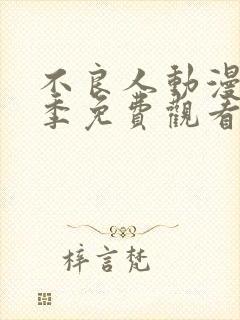 不良人動漫
季免費觀看
梓言梵